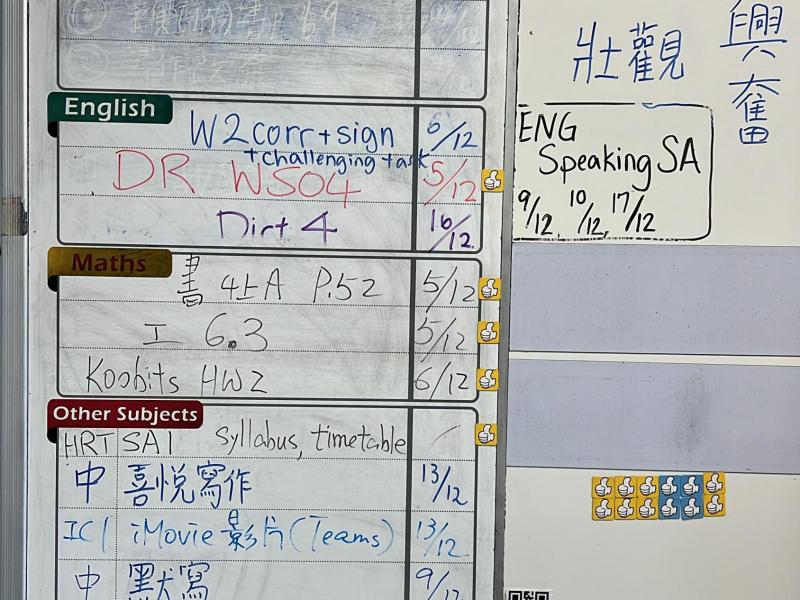 English
W2 corr + sign 6/12
+ challenging task
DR WS04 5/12
Dirt 4 16/12
Maths
書 4上A P.52 5/12
工 6.3 5/12
Koobits HW2 6/12
Other Subjects
HRT SA1 Syllabus, timetable /
中 喜悅寫作 13/12
IC1 iMovie 影片 (Teams) 13/12
中 默寫 9/12
壯觀
興奮
ENG
Speaking SA
9/12, 10/12, 17/12